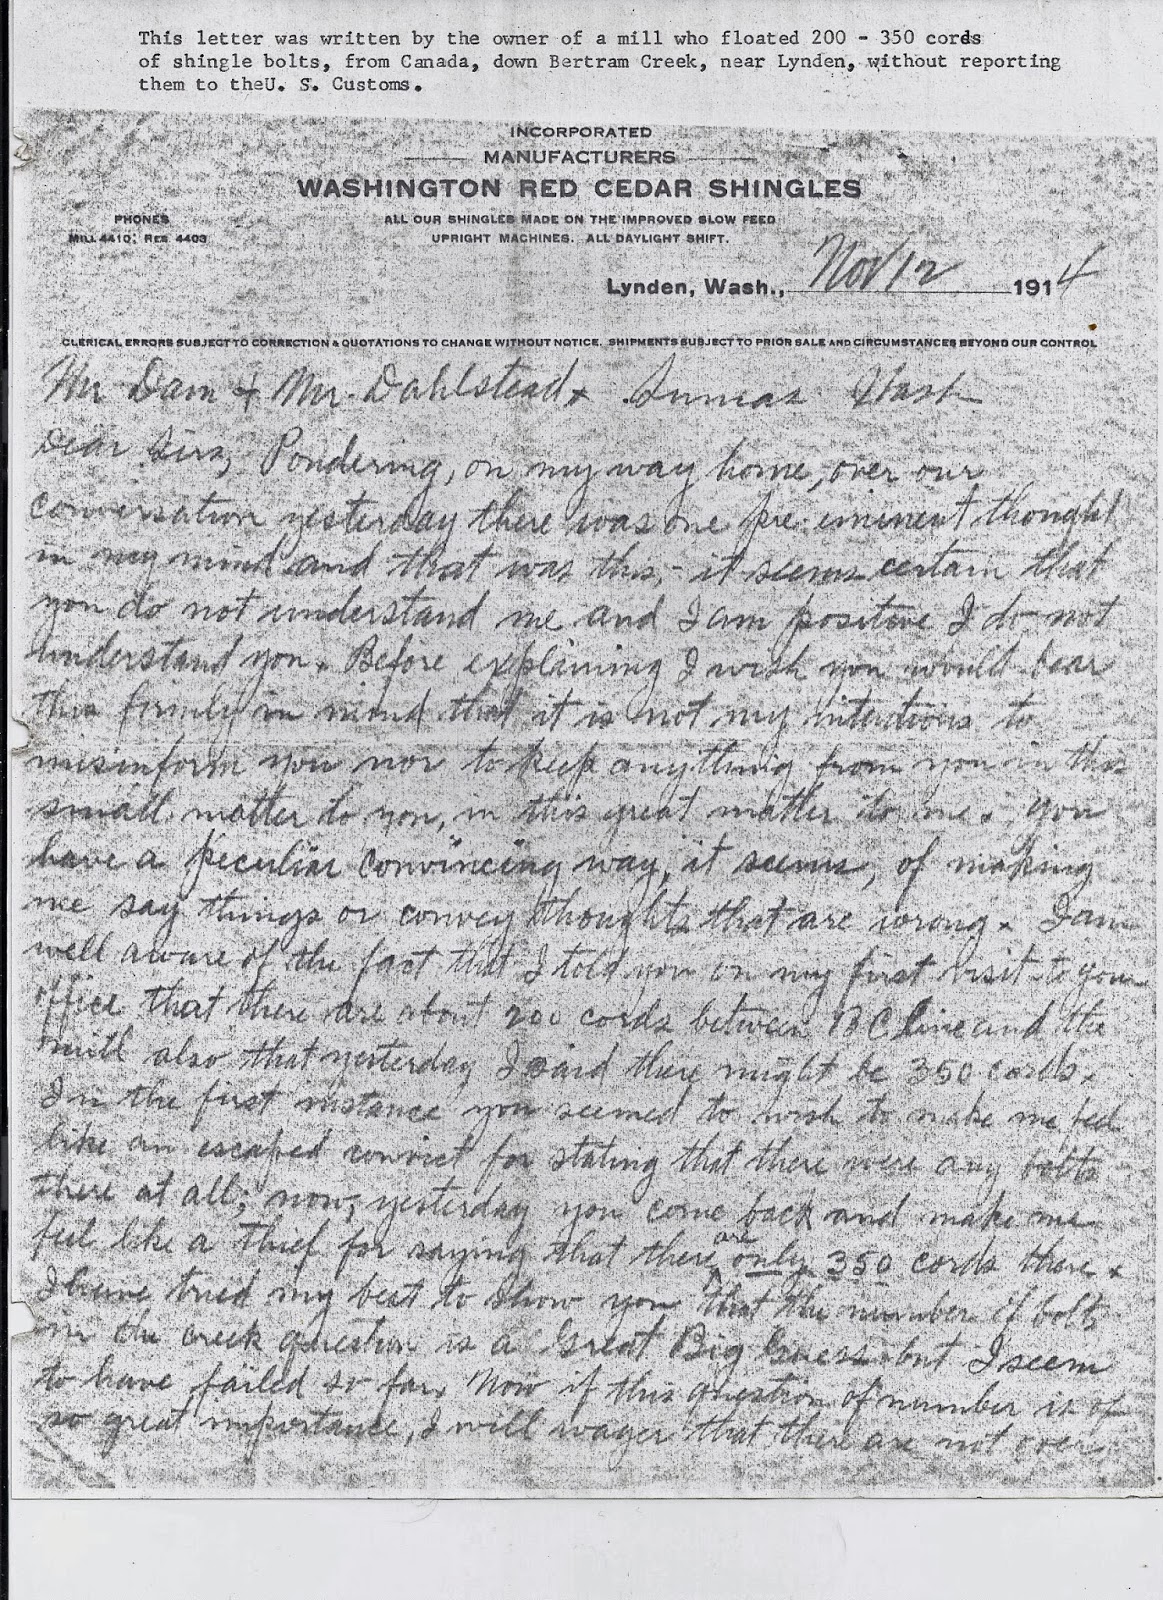 This letter was written by the owner of a mill who floated 200 - 350 cords
of shingle bolts, from Canada, down Bertram Creek, near Lynden, without reporting
them to theU. S. Customs.
INCORPORATED
MANUFACTURERS
WASHINGTON RED CEDAR SHINGLES
PHONES
MILL 4410; RES 4403
ALL OUR SHINGLES MADE ON THE IMPROVED SLOW FEED
UPRIGHT MACHINES. ALL DAYLIGHT SHIFT.
Lynden, Wash., Nov 12 1914
CLERICAL ERRORS SUBJECT TO CORRECTION & QUOTATIONS TO CHANGE WITHOUT NOTICE. SHIPMENTS SUBJECT TO PRIOR SALE AND CIRCUMSTANCES BEYOND OUR CONTROL
Mr Dam & Mr. Dahlstead, Sumas Wash
Dear Sirs, Pondering, on my way home, over our
conversation yesterday there was one pre-eminent thought
in my mind and that was this,- it seems certain that
you do not understand me and I am positive I do not
understand you. Before explaining I wish you would bear
this firmly in mind that it is not my intentions to
misinform you nor to keep anything from you in this
small matter to you, in this great matter to me. You
have a peculiar convincing way, it seems, of making
me say things or convey thoughts that are wrong. I am
well aware of the fact that I told you on my first visit to your
office that there are about 200 cords between BC line and the
mill also that yesterday I said there might be 350 cords.
In the first instance you seemed to wish to make me feel
like an escaped convict for stating that there were any bolts
there at all; now, yesterday you come back and make me
feel like a thief for saying that there are only 350 cords there.
I have tried my best to show you that the number of bolts
in the creek question is a Great Big Guess but I seem
to have failed so far. Now if this question of number is of
so great importance, I will wager that there are not over